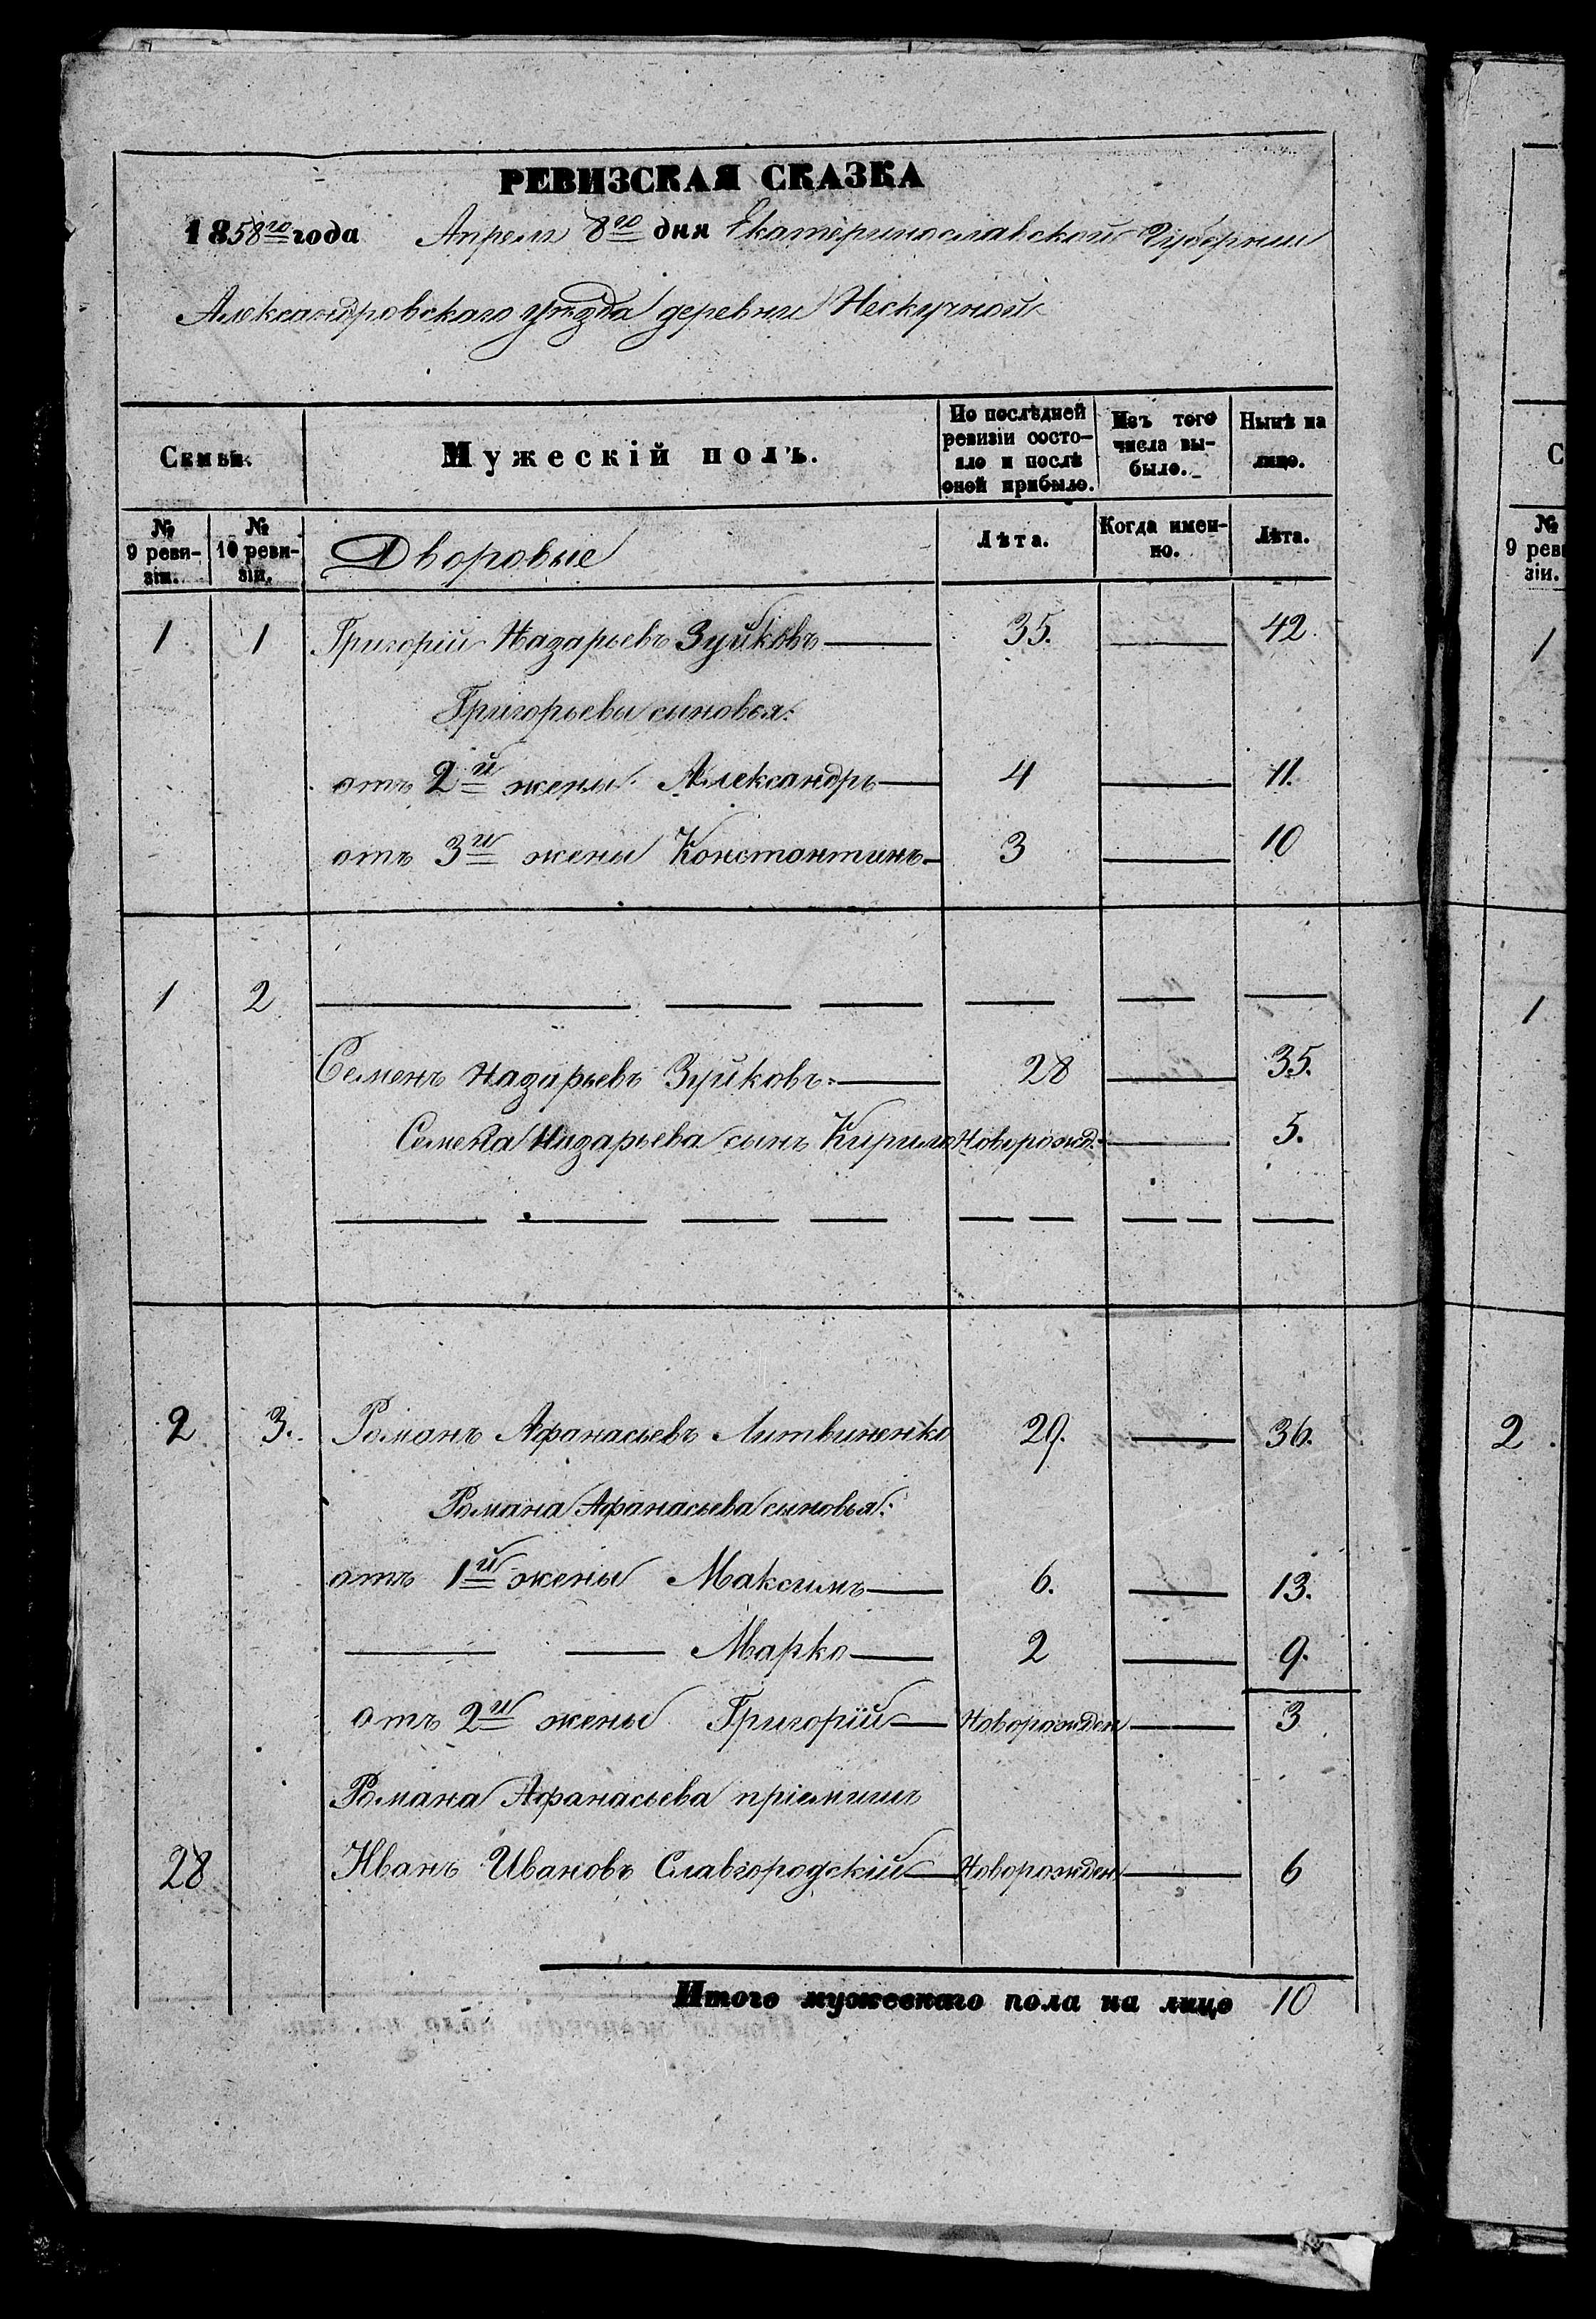 РЕВИЗСКАЯ СКАЗКА
1858го года Апреля 8го дня Екатеринославской Губернии
Александровскаго уѣзда деревни Нескучной
Семьи.
Мужескій полъ.
По послѣдней ревизіи состояло и послѣ оней прибыло.
Изъ того числа выбыло.
Нынѣ на лицо.
№ 9 ревизіи.
№ 10 ревизіи.
Дворовые
Лѣта.
Когда именно.
Лѣта.
1 1 Григорій Назарьевъ Зуйковъ 35. 42
Григорьевы сыновья:
отъ 2й жены Александръ 4 11.
отъ 3й жены Константинъ 3 10
1 2
Семенъ Назарьевъ Зуйковъ 28 35.
Семена Назарьева сынъ Кирило Новорожд. 5.
2 3. Романъ Афанасьевъ Литвиненко 29. 36.
Романа Афанасьева сыновья:
отъ 1й жены Максимъ 6. 13.
Марко 2 9.
отъ 2й жены Григорій Новорожден 3
Романа Афанасьева пріемышъ
28 Иванъ Ивановъ Славгородскій Новорожден 6
Итого мужескаго пола на лицо 10
С
№ 9 реви
зіи.
1
1
2